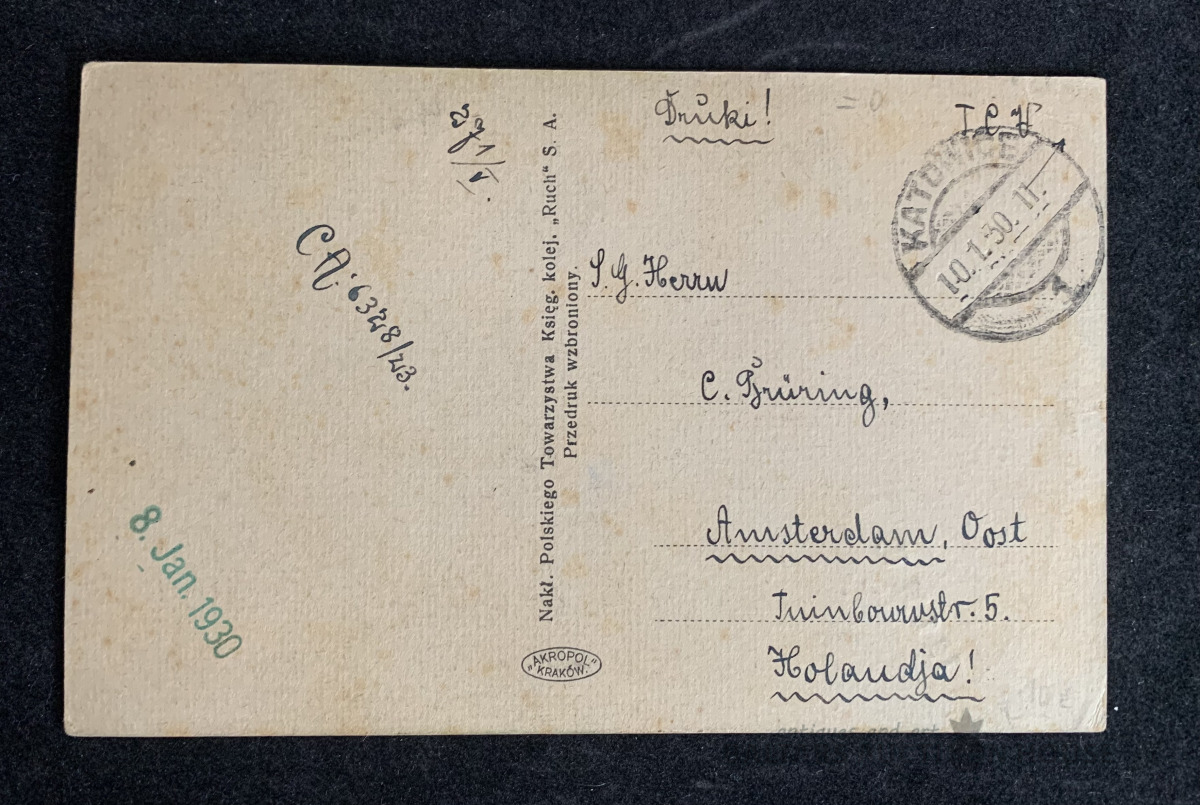 Druki!
T C H
KATOWICE
10.1.30. 11.
1
S. G. Herrn
C. Brüring,
Amsterdam, Oost
Tuinbouwstr. 5.
Holandja!
Nakł. Polskiego Towarzystwa Księg. kolej. „Ruch" S. A.
Przedruk wzbroniony.
"AKROPOL"
KRAKÓW.
CA: 6328/23.
8. Jan. 1930
antiques and art